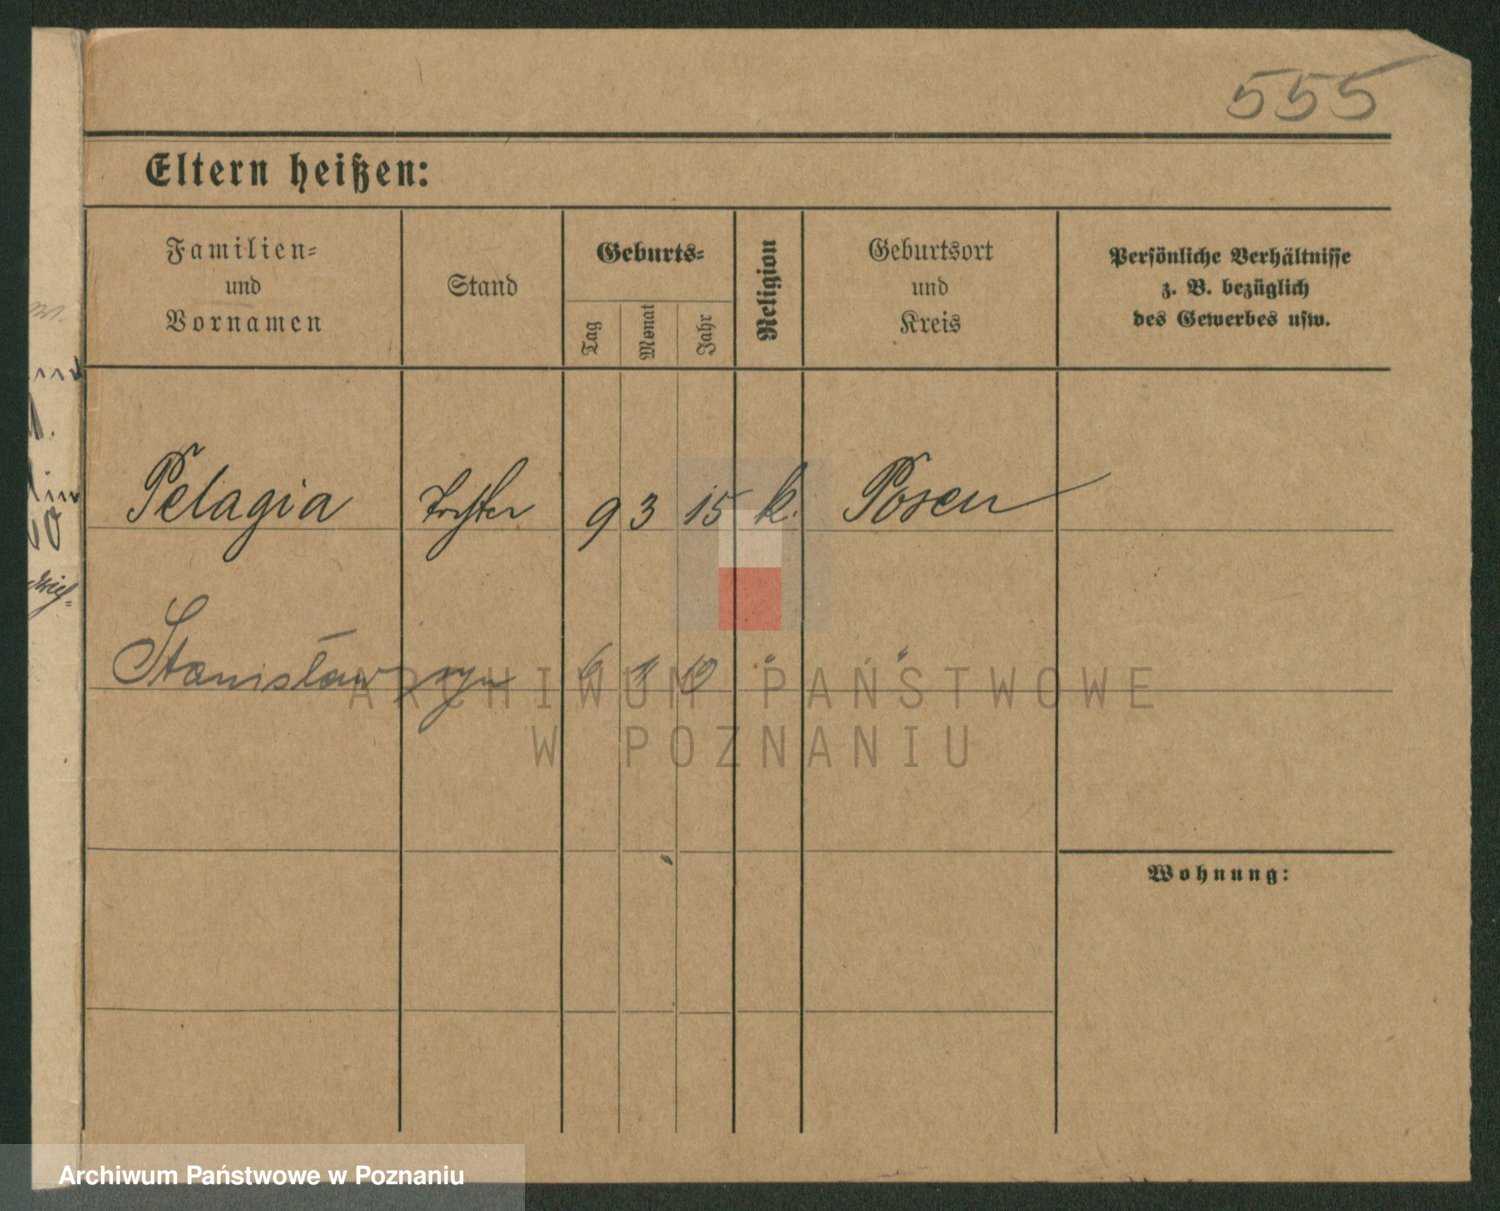 555
Eltern heißen:
Familien= und Vornamen
Stand
Geburts=
Tag
Monat
Jahr
Religion
Geburtsort und Kreis
Persönliche Verhältnisse
z. B. bezüglich
des Gewerbes usw.
Pelagia Tochter 9 3 15 k. Posen
Stanisław syn 6 " "
Wohnung:
ARCHIWUM PAŃSTWOWE
W POZNANIU
Archiwum Państwowe w Poznaniu